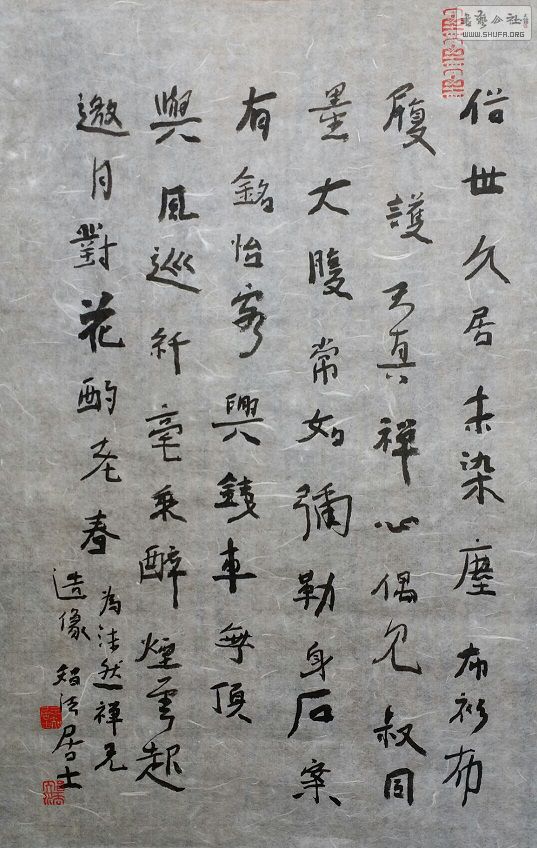 俗世久居未染塵布衫布
履護天真禪心偶見叔同
墨大腹常如彌勒身石案
有銘怡客興錢車無頂
與風巡纖毫乘醉煙雲起
邀月對花酌老春
為沫然禪兄
造像 智法居士
書藝公社
WWW.SHUFA.ORG